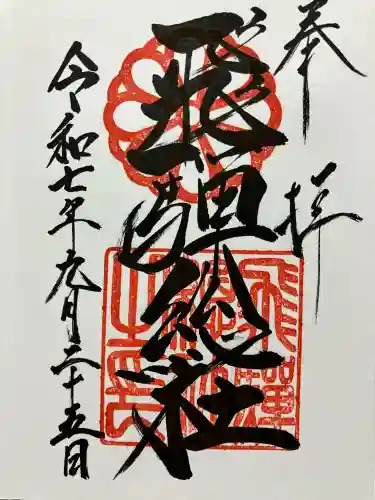 奉拝
飛騨総社
飛騨総社之印
令和七年九月二十五日